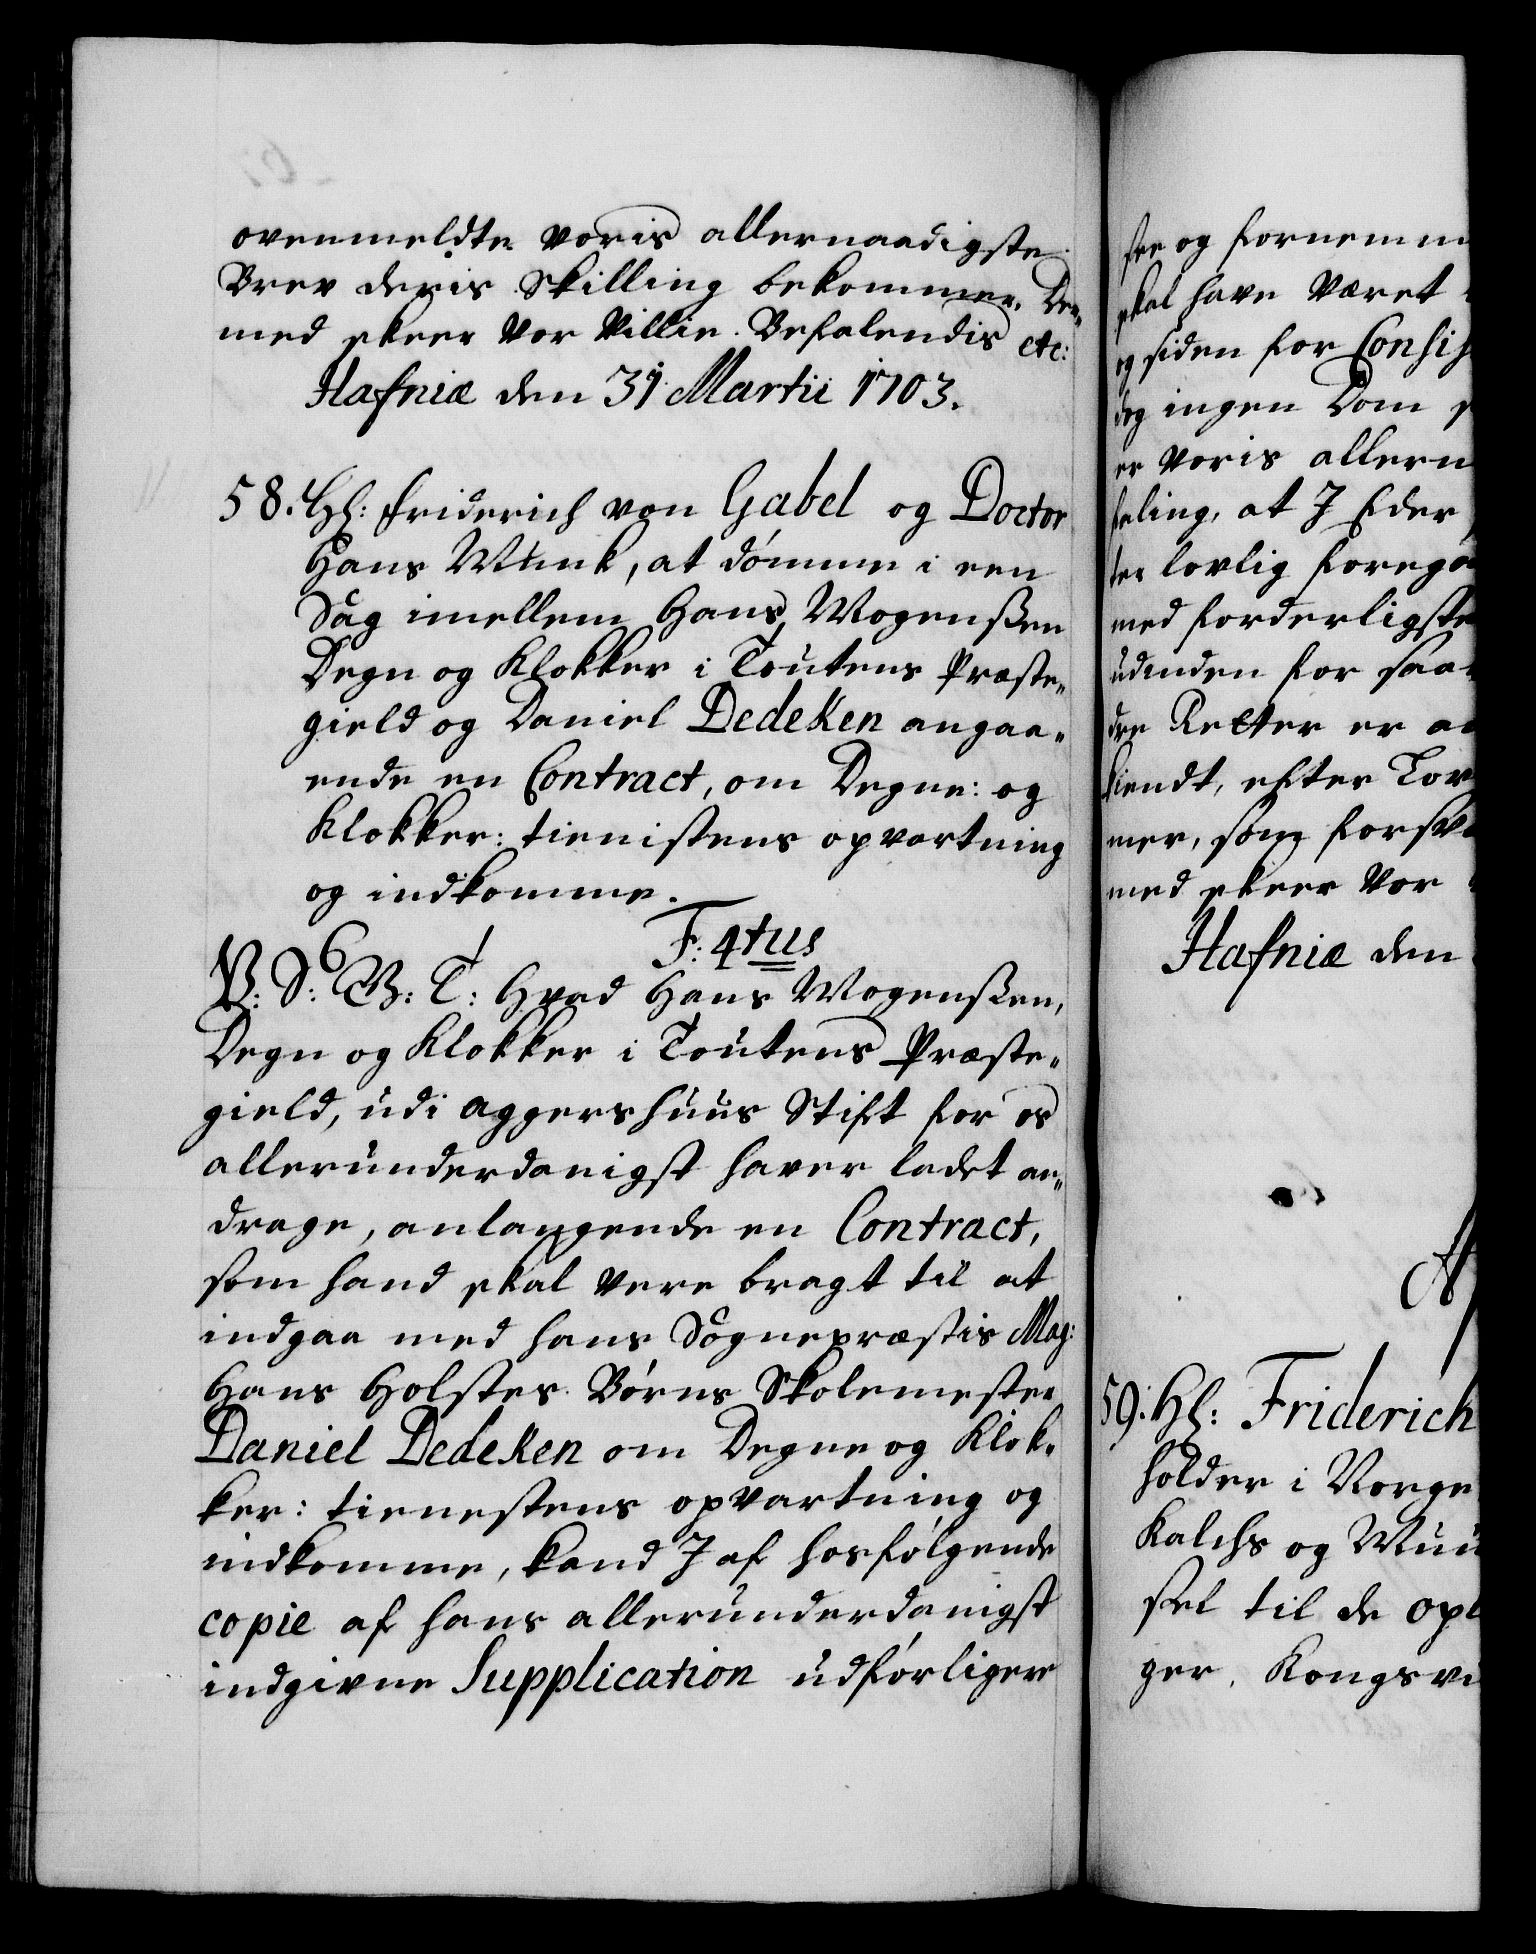 ovenmeldte voris allernaadigste
Brev deris Skilling bekommer. Der„
med skeer vor Villie. Befalendis etc:
Hafniæ den 31 Martii 1703.
58. Hl: Friderich von Gabel og Doctor
Hans Munk, at dómme i een
Sag imellem Hans Mogenßen
Degn og Klokker i Toutens Præste„
gield og Daniel Dedeken angaa„
ende en Contract, om Degne: og
Klokker: tienistens opvartning
og indkomme.
F: 4tus
V: S: G: V: T: Hvad Hans Mogenßen,
Degn og Klokker i Toutens Præste„
gield, udi Aggershuus Stift for os
allerunderdanigst haver ladet an„
drage, anlangende en Contract,
som hand skal vere bragt til at
indgaa med hans Sognepræstis Mag:
Hans Holstes Børns Skolemester
Daniel Dedeken om Degne og Klok„
ker: tienestens opvartning og
indkomme, kand J af hosfølgende
copie af hans allerunderdanigst
indgivne Supplication udførligere
see og fornemm
skal have været
og siden for Consis
dog ingen Dom
er voris allern
feling, at J Eder
ter lovlig forega
med forderligste
udinden for saa
dre Retter er
kiendt, efter Lov
mer, som forsv
med skeer vor
Hafniæ den
59. Hl: Friderich
holder i Norge
Kalchs og Muu
sel til de opl
ger, Kongsvi